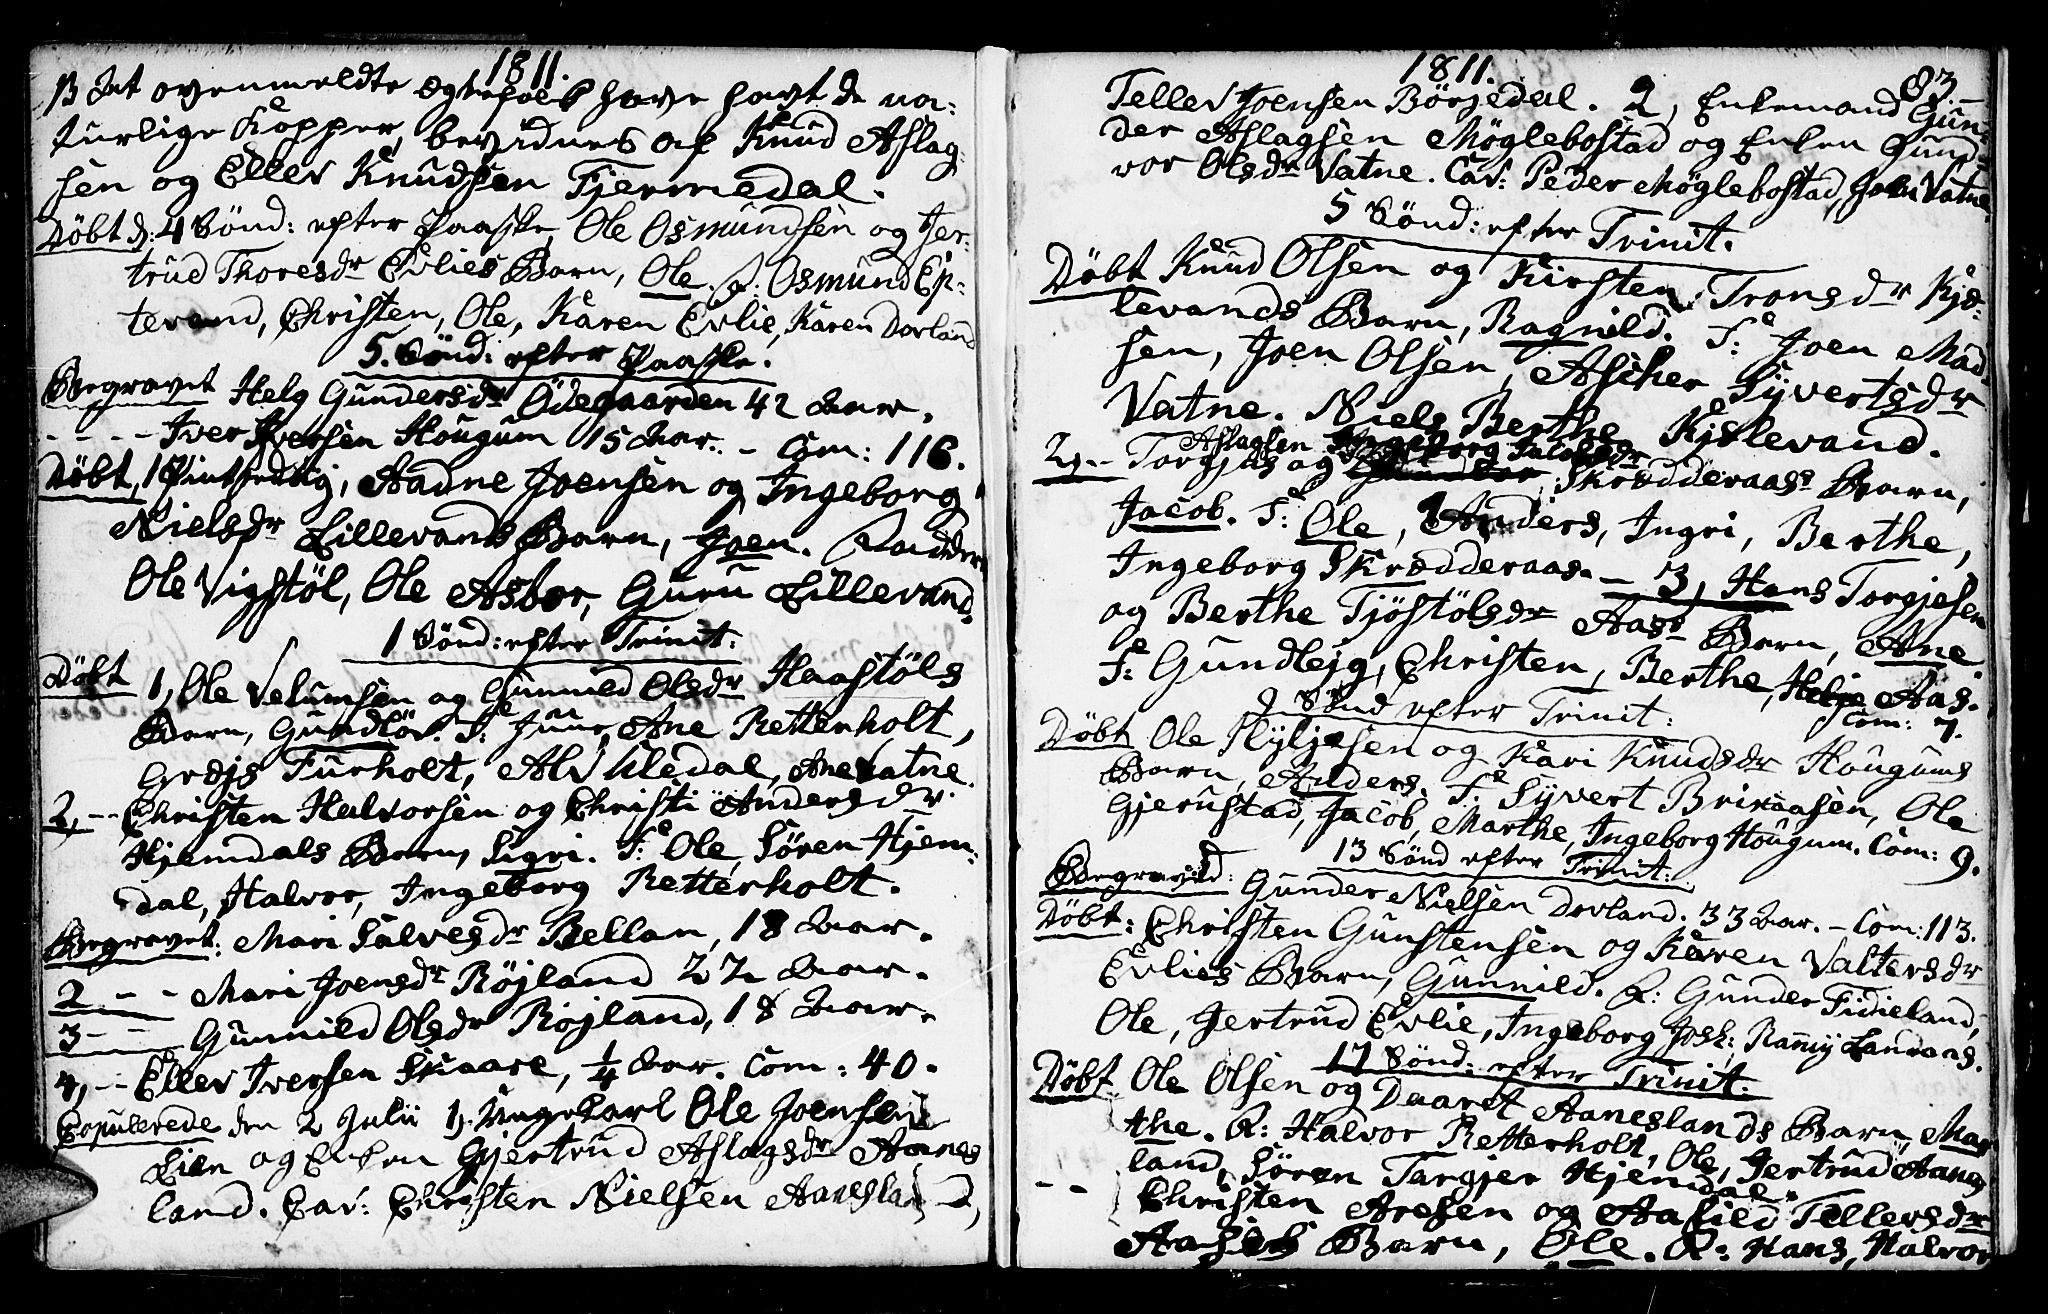 1811.
B At ovenmeldte Egtefolk have havt de na-
turlige Kopper, bevidnes af Knud Aslag-
sen og Ellev Knudsen Tjermedal.
Döbt d: 4 Sönd: efter Paaske, Ole Osmundsen og Jer-
trud Thoresdr Evlies Barn, Ole. F: Osmund Ep-
tevand, Christen, Ole, Karen Evlie, Karen Dovland
5. Sönd: efter Paaske.
Begravet Helg Gundersdr Ödegaarden 42 Aar.
- - - - Iver Iversen Hougum 15 Aar. - Com: 116.
Döbt, 1 Pintsedag, Aadne Joensen og Ingeborg
Nielsdr Lillevands Barn, Joen. Fadder
Ole Vigstöl, Ole Asbor, Guru Lillevand.
1 Sönd: efter Trinit:
Döbt 1, Ole Velumsen og Gunnild Olsdr Haastöls
Barn, Gundlöv. F: Juur, Ane Retterholt,
Grejs Furholt, Alv Uledal, Ane Vatne.
2, - - Christen Halvorsen og Christi Andersdr
Hjemdals Barn, Sigri. F: Ole, Sören Hjem-
dal, Halvor, Ingeborg Retterholt.
Begravet: Mari Salvesdr Bellan, 18 Aar.
2 - - - Mari Joensdr Röjland 22 Aar.
3 - - Gunnild Olsdr Röjland, 18 Aar.
4, - - Ellev Iversen Skaare, 1/4 Aar. Com: 40.
Copulerede den 2 Julii 1, Ungekarl Ole Joensen
Lien og Enken Gjertrud Aslagsdr Aanes
land. Cav: Christen Nielsen Aanesland,
1811. 83.
Tellev Joensen Börjedal. 2, Enkemand Gun-
der Aslagsen Möglebostad og Enken Gund-
vor Olsdr Vatne. Cav: Peder Möglebostad, John Vatne.
5 Sönd: efter Trinit.
Döbt Knud Olsen og Kirsten Tronsdr Kjø-
levands Barn, Ragnild. F: Joen Mad-
sen, Joen Olsen, Ascher Syvertsdr
Vatne. Niels, Berthe Kjølevand.
2, - - Torgjus Aslagsen og Ingeborg Jacobsdr Skrædderaas Barn,
Jacob. F: Ole, Anders, Ingri, Berthe,
Ingeborg Skrædderaas. - 3, Hans Torgjesen
og Berthe Tjöstölsdr Aass Barn, Ane
F: Gundlejg, Christen, Berthe, Helje Aas.
9 Sönd efter Trinit: Com: 7.
Döbt Ole Kyljesen og Kari Knudsdr Hougums
Barn, Anders. F: Syvert Brivaasen, Ole
Gjerustad, Jacob, Marthe, Ingeborg Hougum. Com: 9.
13 Sönd efter Trinit:
Begravet: Gunder Nielsen Dovland. 33 Aar. - Com: 113.
Döbt: Christen Gunstensen og Karen Valtersdr
Evlies Barn, Gunnild. F: Gunder Fidieland,
Ole, Jertrud Evlie, Ingeborg Josk: Lauraas.
17 Sönd: efter Trinit.
Döbt Ole Olsen og Daaret Aaneslands Barn, Mar
the. F: Halvor Retterholt, Ole, Jertrud Aanes
land, Sören Targjer Hjemdal.
- - Christen Aresen og Aasild Tellevsdr
Barn, Ole. F: Hans, Halvor